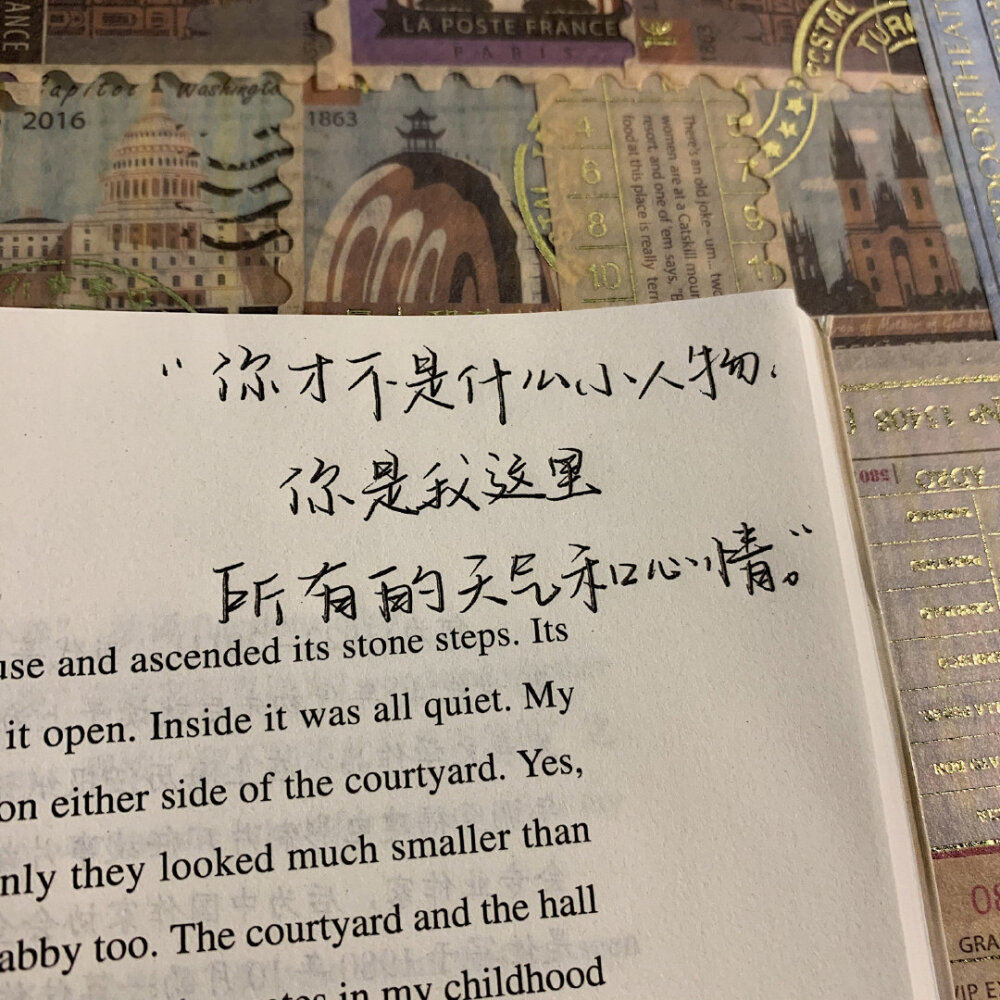 LA POSTE FRANCE
PARIS
Capitol & Washington
2016
1863
POSTAL
4
6
8
10
5
7
9
11
There's an old joke - um... two
women are at a Catskill
resort, and one of 'em says, "
food at this place is really
"你才不是什么小人物,
你是我这里
所有的天气和心情。"
use and ascended its stone steps. Its
it open. Inside it was all quiet. My
on either side of the courtyard. Yes,
nly they looked much smaller than
abby too. The courtyard and the hall
in my childhood
13408
580
GRA